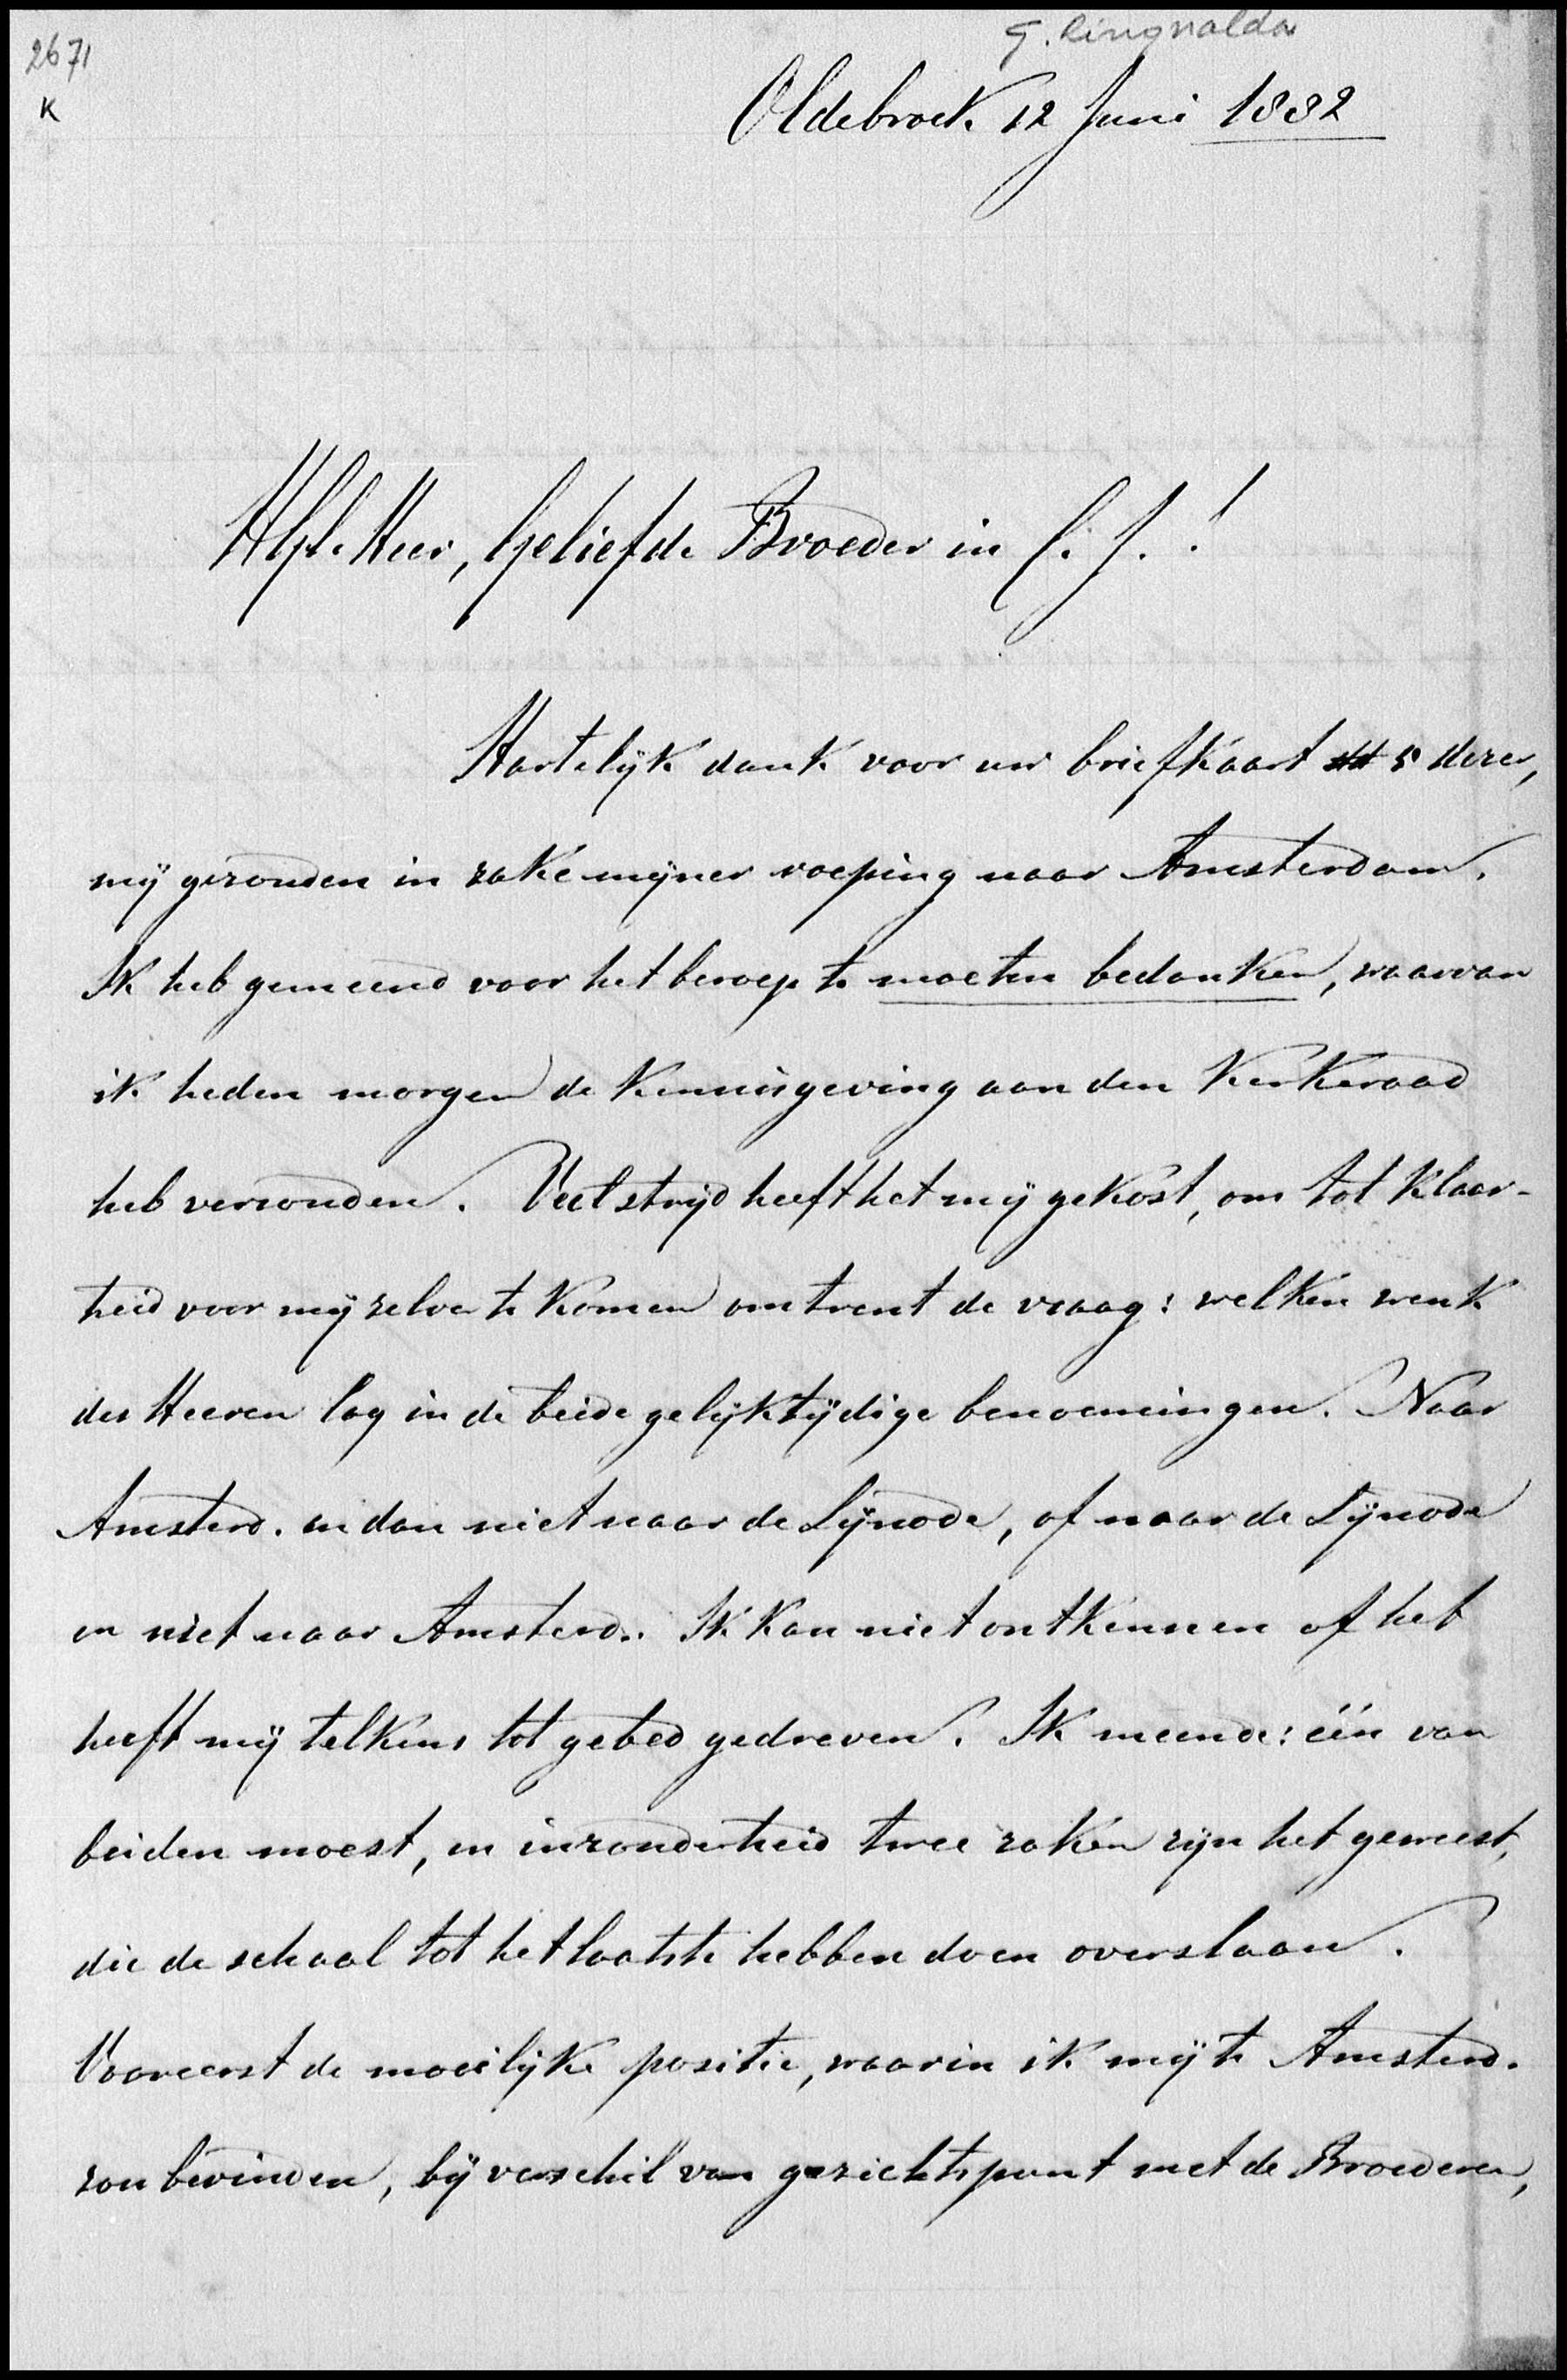 2671
K
G. Ringnalda
Oldebroek 12 Juni 1882
HGel. Heer, Geliefde Broeder in C. J.!
Hartelijk dank voor uw briefkaart 5 dezer,
mij gezonden in zake mijner roeping naar Amsterdam.
Ik heb gemeend voor het beroep te moeten bedanken, waarvan
ik heden morgen de kennisgeving aan den Kerkeraad
heb verzonden. Veel strijd heeft het mij gekost, om tot klaar-
heid voor mij zelven te komen omtrent de vraag: welken wenk
des Heeren lag in de beide gelijktijdige benoemingen. Naar
Amsterd. en dan niet naar de Synode, of naar de Synode
en niet naar Amsterd.. Ik kan niet ontkennen of het
heeft mij telkens tot gebed gedreven. Ik meende: één van
beiden moest, en inzonderheid twee zaken zijn het geweest,
die de schaal tot het laatste hebben doen overslaan.
Vooreerst de moeilijke positie, waarin ik mij te Amsterd.
zou bevinden, bij verschil van gezichtspunt met de Broederen,